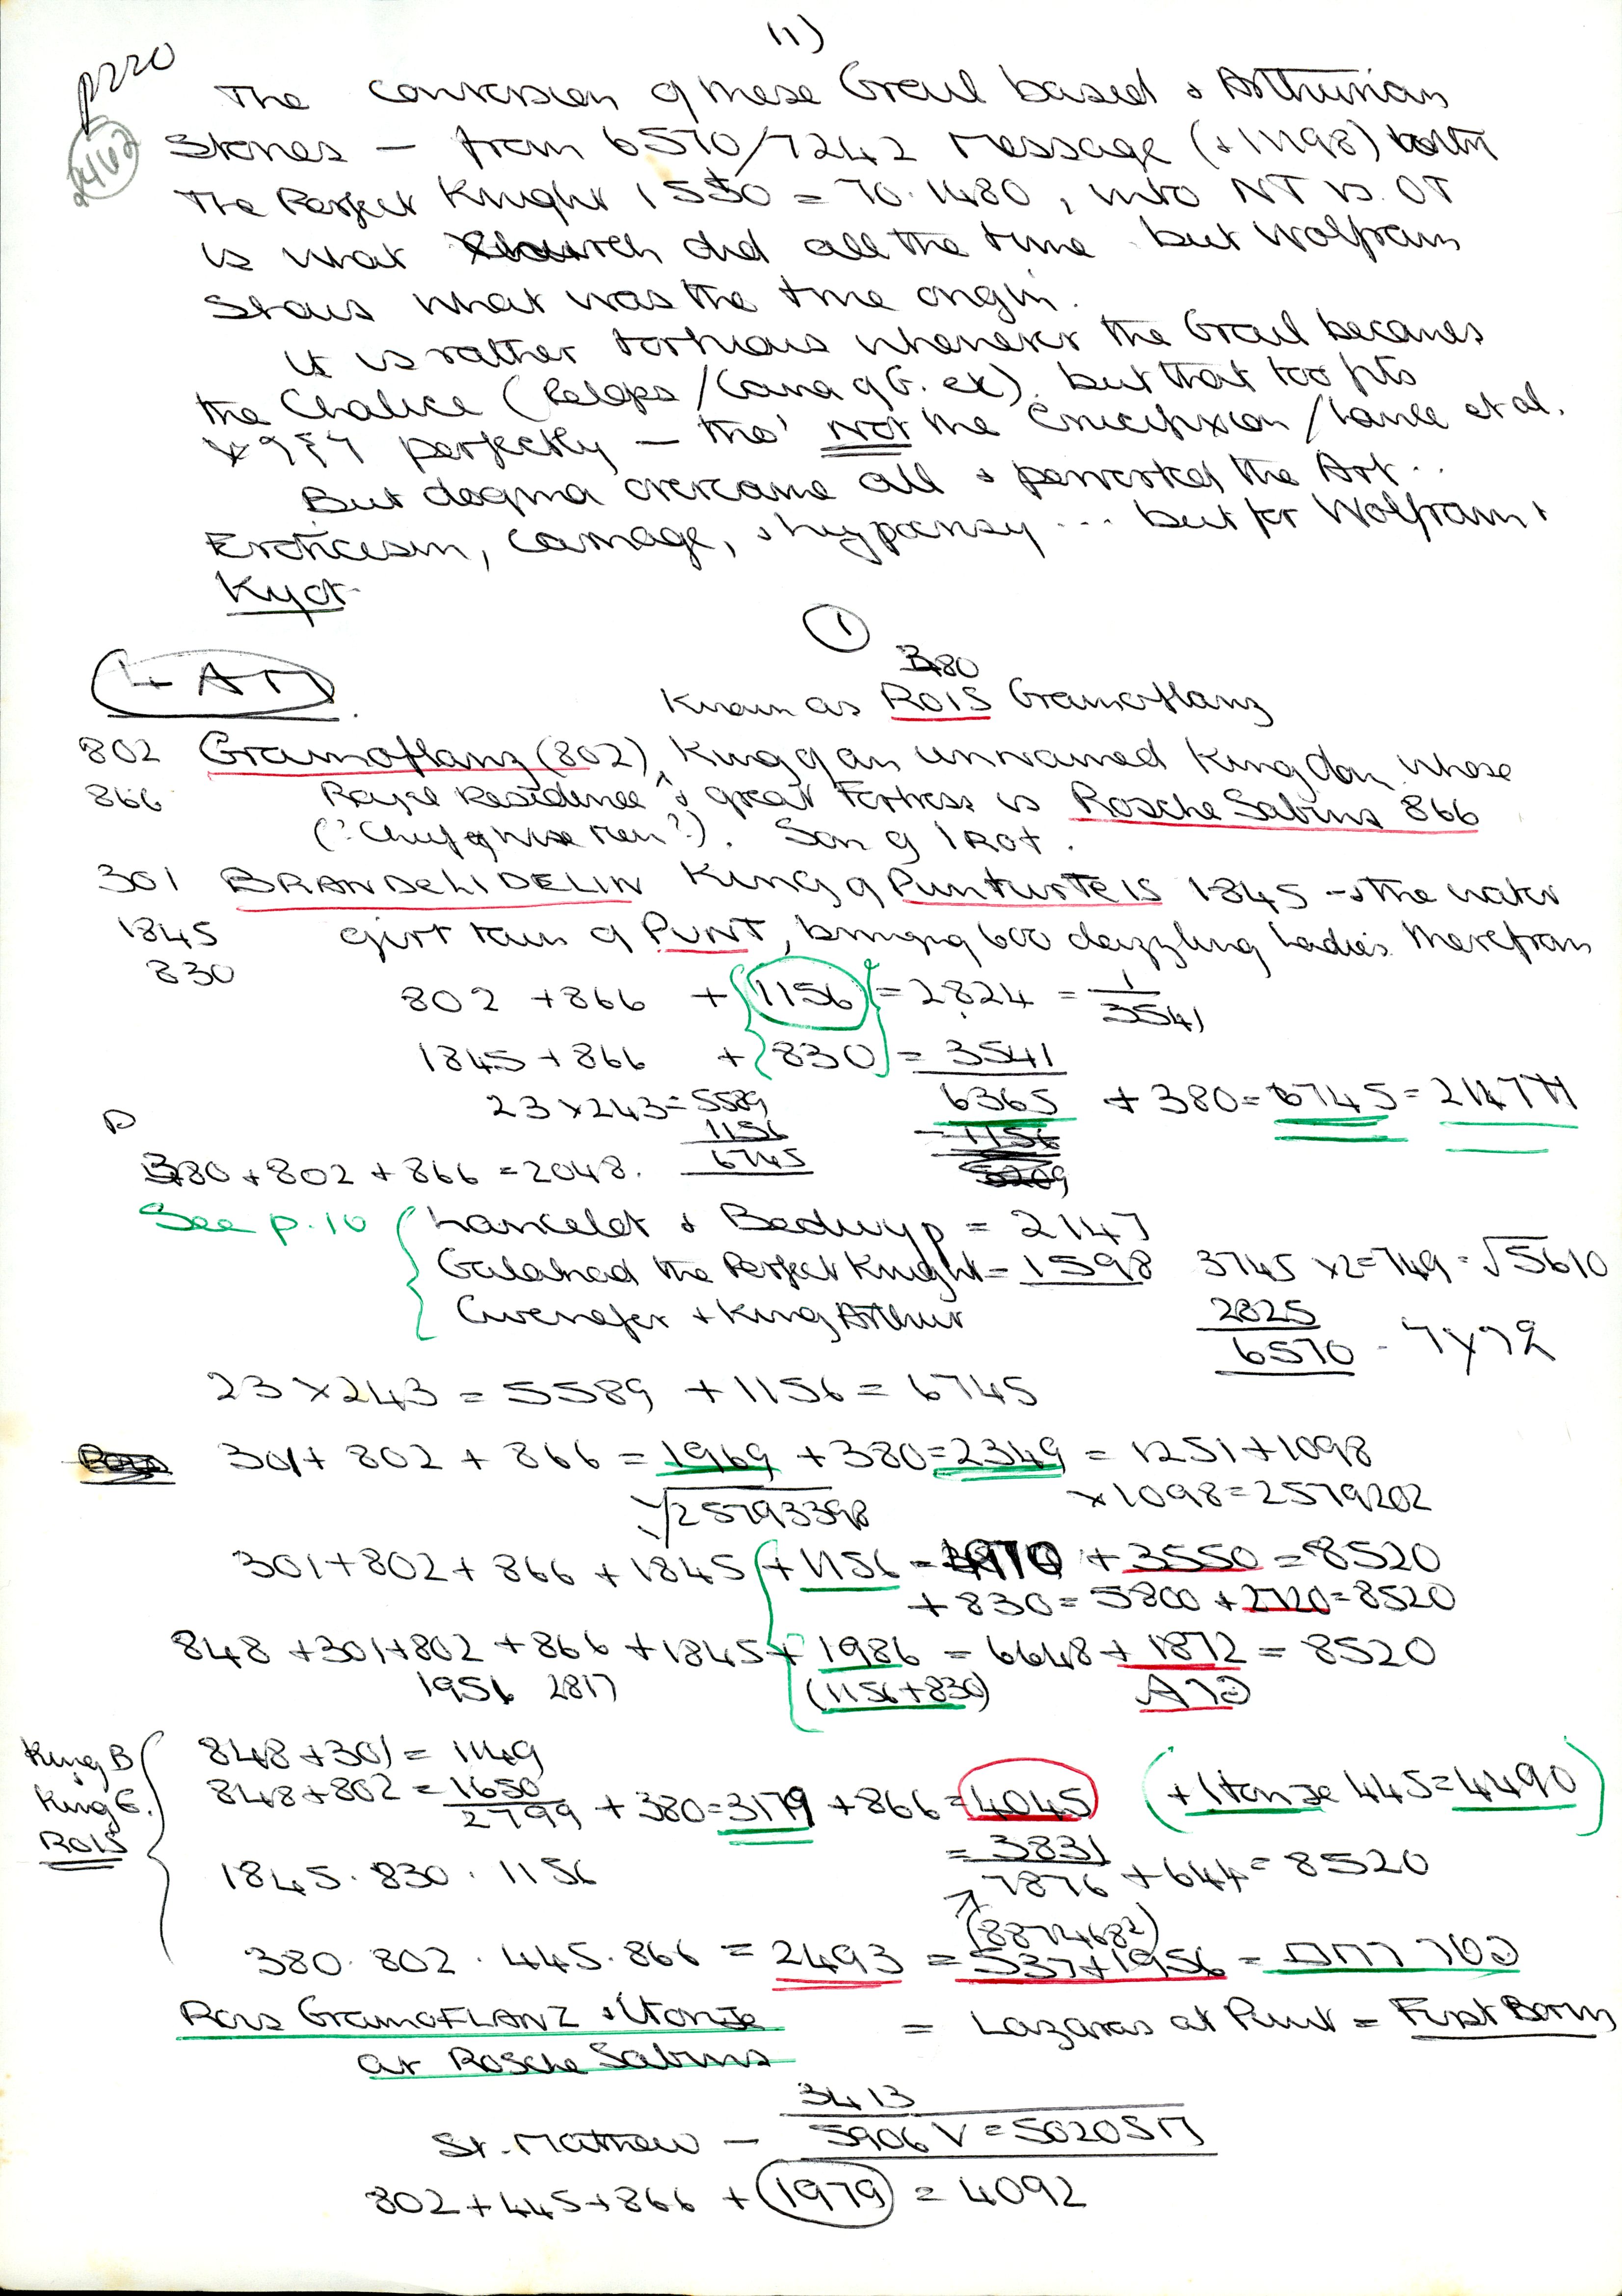 11)
p220
2462
The conversion of these Grail based & Arthurian
Stories — from 6570/7242 Message (+1498) both
The Perfect Knight 1550 = 70.1480, into NT vs. OT
is what Church did all the time but Wolfram
Shows what was the true origin.
It is rather tortuous whenever the Grail becomes
the Chalice (Pelops/Cana of G. etc) but that too fits
perfectly — tho' NOT the Crucifixion / Lance et al.
But dogma overcame all & perverted the Art..
Eroticism, carnage, & hypocrisy ... but for Wolfram +
Kyot.
1
380
Known as ROIS Gramoflanz
802 Gramoflanz (802), King of an unnamed Kingdom whose
866 Royal Residence & great Fortress is Rosche Sabins 866
(? Chief of wise men?). Son of Irot.
301 BRANDELIDELIN King of Punturteis 1845 - & the water
1845 girt town of PUNT, bringing 600 dazzling ladies therefrom
830
802 + 866 + 1156 = 2824 = 1/3541
1845 + 866 + 830 = 3541
23 x 243 = 5589 6365 + 380 = 6745 = 2147
1156 1156
6745 5209
380 + 802 + 866 = 2048.
See p. 10 Lancelot & Bedwyr = 2147
Galahad the Perfect Knight = 1598 3745 x 2 = 749 = √5610
Gwenefer + King Arthur 2825
6570
23 x 243 = 5589 + 1156 = 6745
301 + 802 + 866 = 1969 + 380 = 2349 = 1251 + 1098
√25793398 x 1098 = 2579202
301 + 802 + 866 + 1845 + 1156 = 4970 + 3550 = 8520
+ 830 = 5800 + 2720 = 8520
848 + 301 + 802 + 866 + 1845 + 1986 = 6648 + 1872 = 8520
1951 2817 (1156 + 830)
King B 848 + 301 = 1149
King G. 848 + 802 = 1650
ROIS 2799 + 380 = 3179 + 866 = 4045 (+ Itonje 445 = 4490)
= 3831
1845 . 830 . 1156 7876 + 644 = 8520
(887468²)
380 . 802 . 445 . 866 = 2493 = 537 + 1956 =
Rois GramoFLANZ & Itonje = Lazaras at Punt = First Born
at Rosche Sabins
3413
St. Matthew — 5906 V = 50205
802 + 445 + 866 + 1979 = 4092